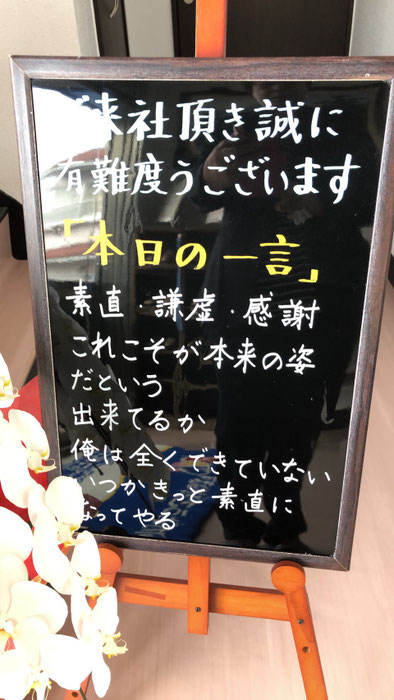 ご来社頂き誠に
有難度うございます
「本日の一言」
素直・謙虚・感謝
これこそが本来の姿
だという
出来てるか
俺は全くできていない
いつかきっと素直に
なってやる